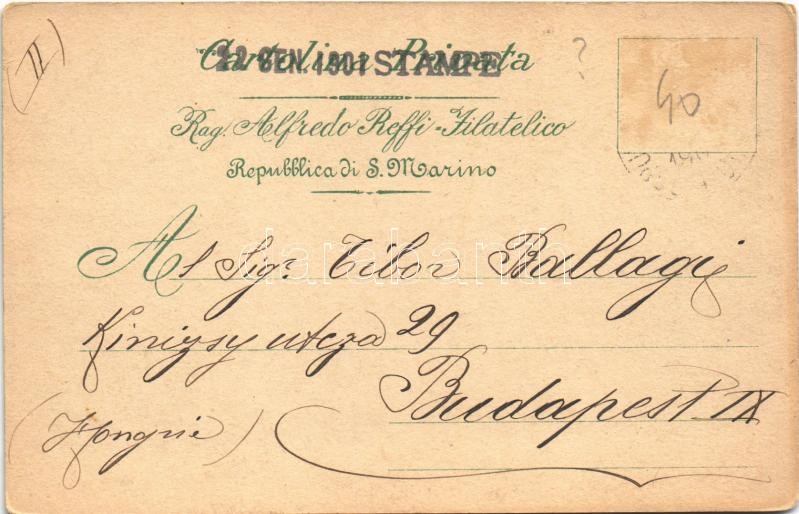 (II)
Cartolina Privata
22 GEN. 1901 STAMPE
?
40
Rag. Alfredo Reffi - Filatelico
Repubblica di S. Marino
Al Sigr. Tibor Ballagi
Kinizsy utcza 29
Budapest IX
(Hongrie)
darabanth